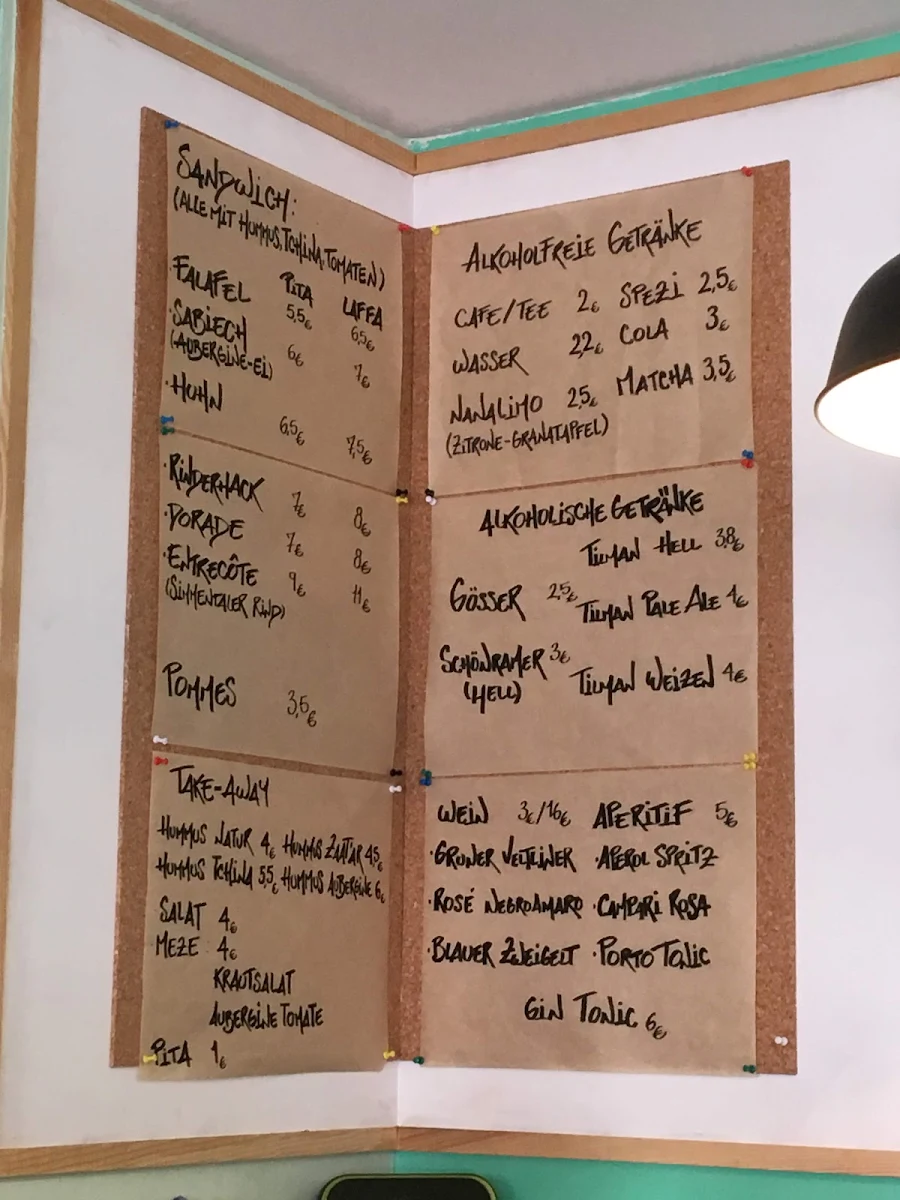 SANDWICH:
(ALLE MIT HUMMUS, TCHINA, TOMATEN)
PITA LAFFA
FALAFEL 5,5€ 6,5€
·SABIECH 6€ 7€
(AUBERGINE-EI)
·HUHN 6,5€ 7,5€
·RINDERHACK 7€ 8€
·DORADE 7€ 8€
·ENTRECÔTE 9€ 11€
(SIMMENTALER RIND)
POMMES 3,5€
TAKE-AWAY
HUMMUS NATUR 4€ HUMMUS ZAATAR 4,5€
HUMMUS TCHINA 5,5€ HUMMUS AUBERGINE 6€
SALAT 4€
MEZE 4€
KRAUTSALAT
AUBERGINE TOMATE
PITA 1€
ALKOHOLFREIE GETRÄNKE
CAFE/TEE 2€ SPEZI 2,5€
WASSER 2,2€ COLA 3€
NANALIMO 2,5€ MATCHA 3,5€
(ZITRONE-GRANATAPFEL)
ALKOHOLISCHE GETRÄNKE
TILMAN HELL 3,8€
GÖSSER 2,5€ TILMAN PALE ALE 4€
SCHÖNRAMER 3€ TILMAN WEIZEN 4€
(HELL)
WEIN 3€/16€ APERITIF 5€
·GRUNER VELTLINER ·APEROL SPRITZ
·ROSÉ NEGROAMARO ·CAMPARI ROSA
·BLAUER ZWEIGELT ·PORTO TONIC
GIN TONIC 6€